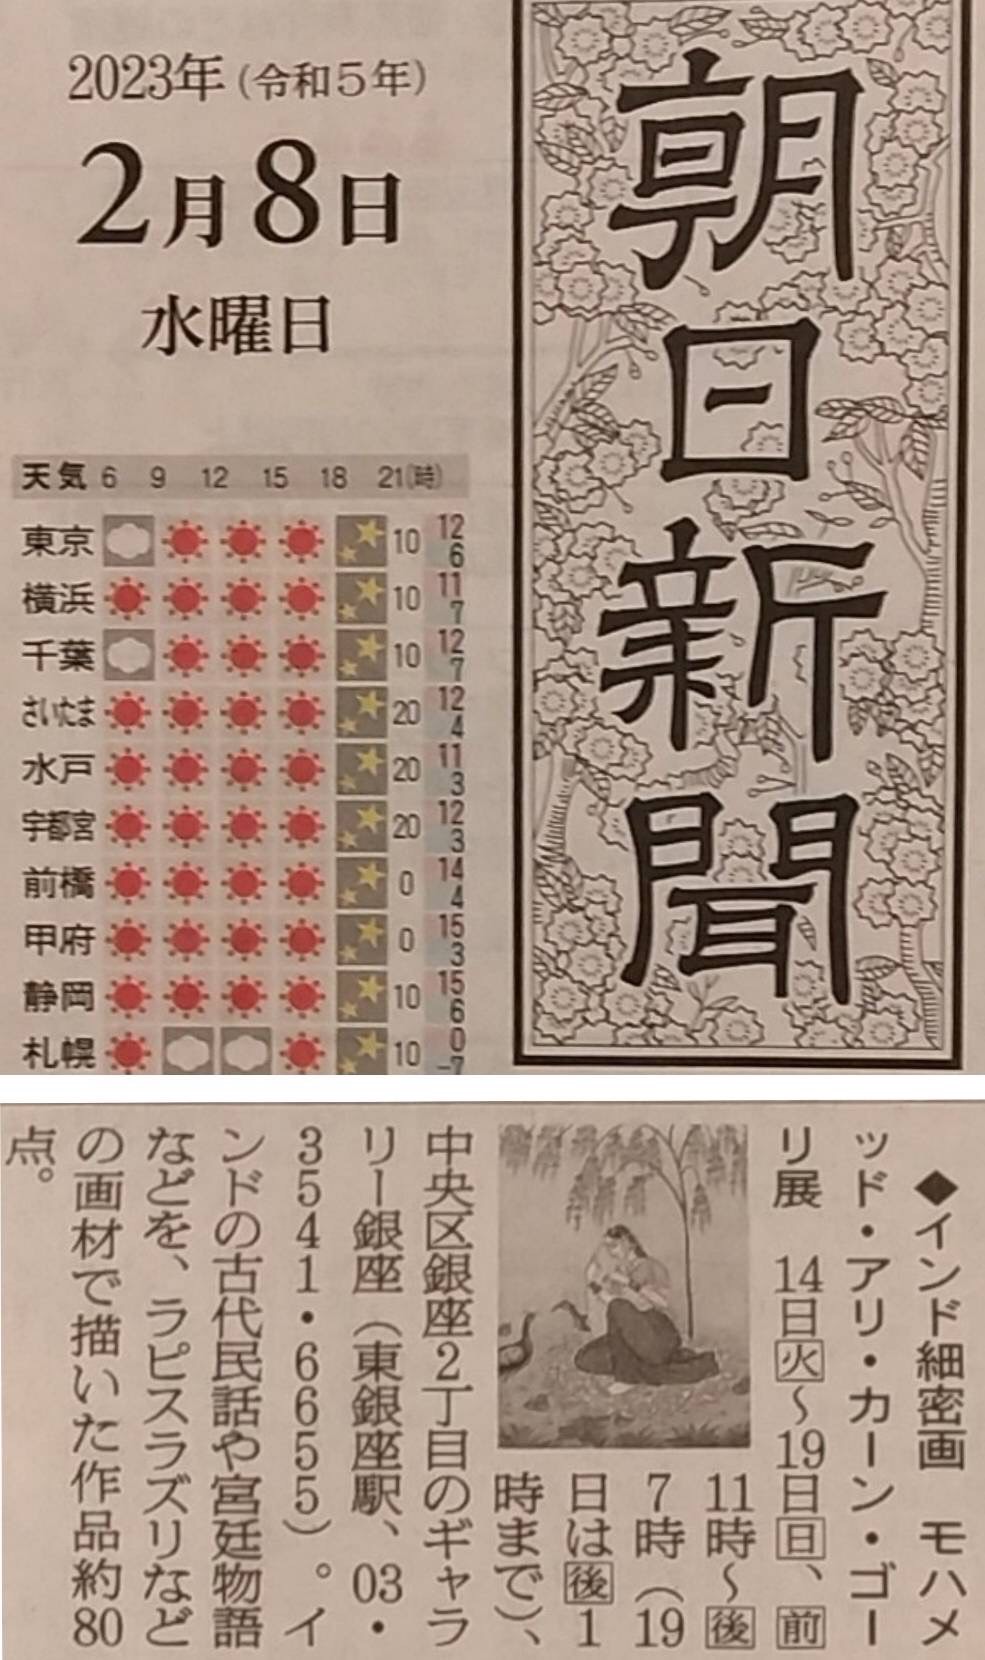 2023年(令和5年)
2月8日
水曜日
朝日新聞
天気 6 9 12 15 18 21(時)
東京 10 12 6
横浜 10 11 7
千葉 10 12 7
さいたま 20 12 4
水戸 20 11 3
宇都宮 20 12 3
前橋 0 14 4
甲府 0 15 3
静岡 10 15 6
札幌 10 0 -7
◆インド細密画 モハメ
ッド・アリ・カーン・ゴー
リ展 14日火〜19日日、前
11時〜後
7時(19
日は後1
時まで)、
中央区銀座2丁目のギャラ
リー銀座(東銀座駅、03・
3541・6655)。イ
ンドの古代民話や宮廷物語
などを、ラピスラズリなど
の画材で描いた作品約80
点。